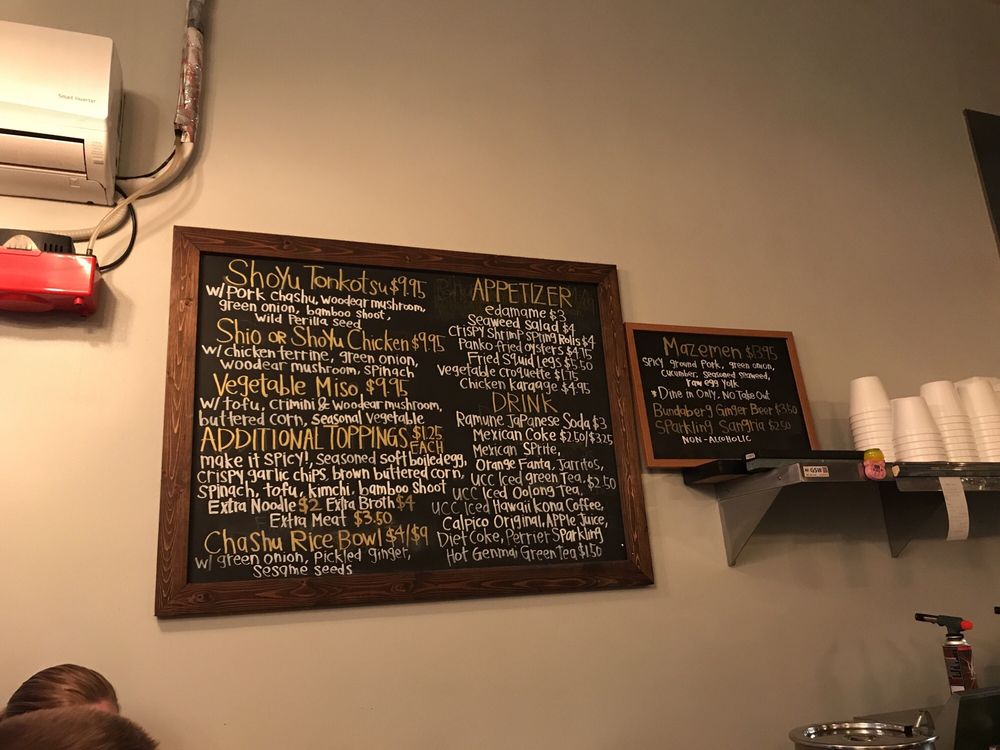 Smart Inverter
Shoyu Tonkotsu $9.95
w/Pork chashu, woodear mushroom,
green onion, bamboo shoot,
wild Perilla seed
Shio or Shoyu Chicken $9.95
w/chicken terrine, green onion,
woodear mushroom, spinach
Vegetable Miso $9.95
w/tofu, crimini & woodear mushroom,
buttered corn, seasonal vegetable
ADDITIONAL TOPPINGS $1.25
EACH
make it spicy!, seasoned soft boiled egg,
crispy garlic chips, brown buttered corn,
spinach, tofu, kimchi, bamboo shoot
Extra Noodle $2 Extra Broth $4
Extra Meat $3.50
Chashu Rice Bowl $4/$9
w/green onion, Pickled ginger,
Sesame seeds
APPETIZER
edamame $3
Seaweed salad $4
Crispy Shrimp Spring Rolls $4
Panko fried oysters $4.75
Fried Squid Legs $5.50
Vegetable Croquette $1.75
Chicken Karaage $4.95
DRINK
Ramune Japanese Soda $3
Mexican Coke $2.50/$3.25
Mexican Sprite,
Orange Fanta, Jarritos,
UCC Iced green Tea, $2.50
UCC Iced Oolong Tea,
UCC Iced Hawaii Kona Coffee,
Calpico Original, Apple Juice,
Diet Coke, Perrier Sparkling
Hot Genmai Green Tea $1.50
Mazemen $13.95
spicy ground Pork, green onion,
cucumber, seasoned seaweed,
raw egg yolk
* Dine in Only, No Take Out
Bundaberg Ginger Beer $3.50
Sparkling Sangria $2.50
NON-ALCOHOLIC
GSW